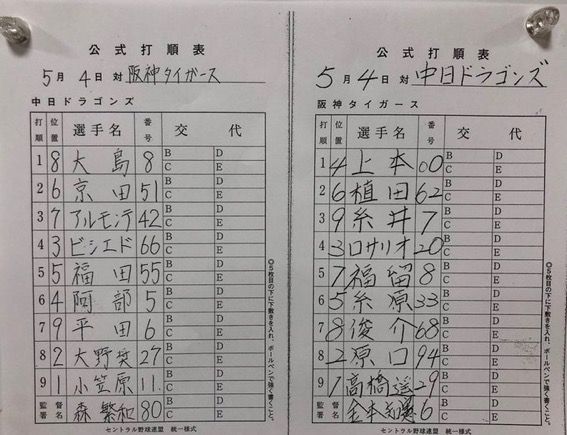 公式打順表
5月4日 対 阪神タイガース
中日ドラゴンズ
打順 位置 選手名 番号 交代
1 8 大島 8 B D C E
2 6 京田 51 B D C E
3 7 アルモンテ 42 B D C E
4 3 ビシエド 66 B D C E
5 5 福田 55 B D C E
6 4 阿部 5 B D C E
7 9 平田 6 B D C E
8 2 大野奨 27 B D C E
9 1 小笠原 11. B D C E
監督署名 森繁和 80
セントラル野球連盟 統一様式
◎5枚目の下に下敷きを入れ、ボールペンで強く書くこと。
公式打順表
5月4日 対 中日ドラゴンズ
阪神タイガース
打順 位置 選手名 番号 交代
1 4 上本 00 B D C E
2 6 植田 62 B D C E
3 9 糸井 7 B D C E
4 3 ロサリオ 20 B D C E
5 7 福留 8 B D C E
6 5 糸原 33 B D C E
7 8 俊介 68 B D C E
8 2 原口 94 B D C E
9 1 高橋遥 29 B D C E
監督署名 金本知憲 6
セントラル野球連盟 統一様式
◎5枚目の下に下敷きを入れ、ボールペンで強く書くこと。